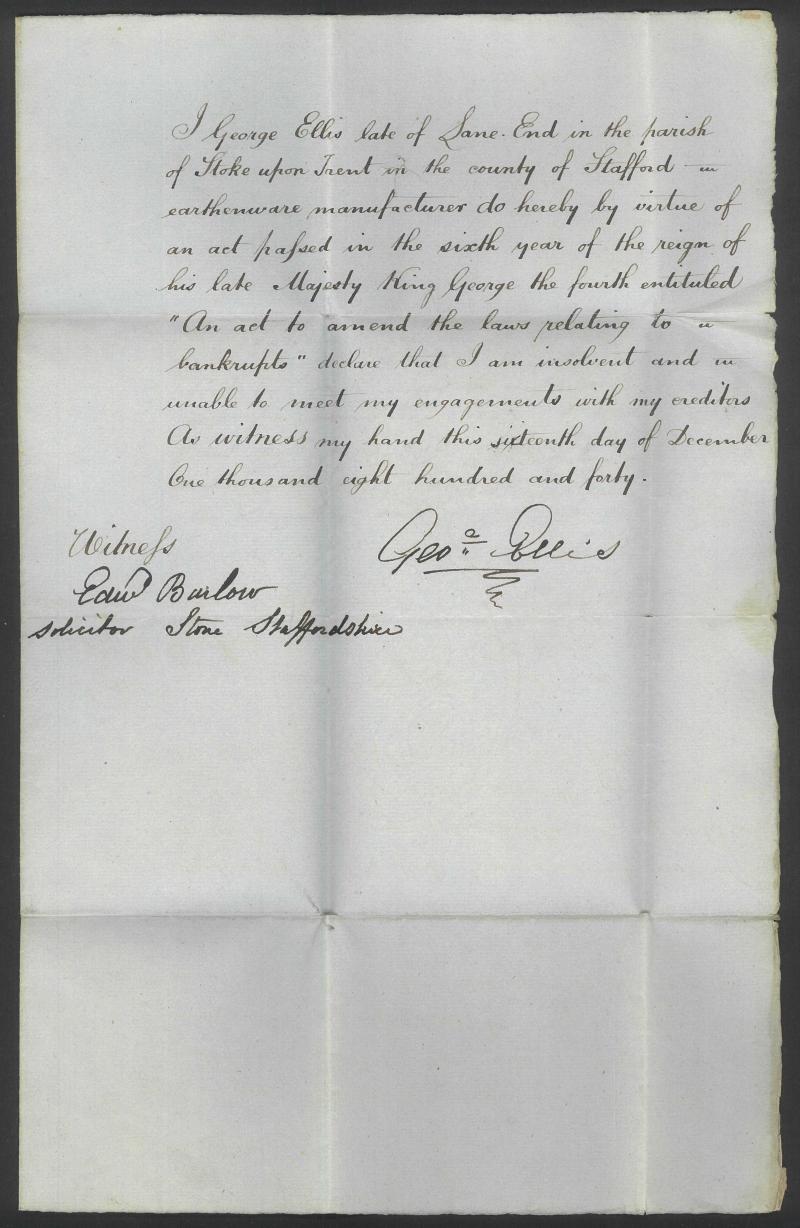 I George Ellis late of Lane End in the parish
of Stoke upon Trent in the county of Stafford
earthenware manufacturer do hereby by virtue of
an act paſsed in the sixth year of the reign of
his late Majesty King George the fourth entituled
"An act to amend the laws relating to
bankrupts" declare that I am insolvent and
unable to meet my engagements with my creditors
As witness my hand this sixteenth day of December
One thousand eight hundred and forty.
Witneſs
Geo. Ellis
Edwd Barlow
solicitor Stone Staffordshire